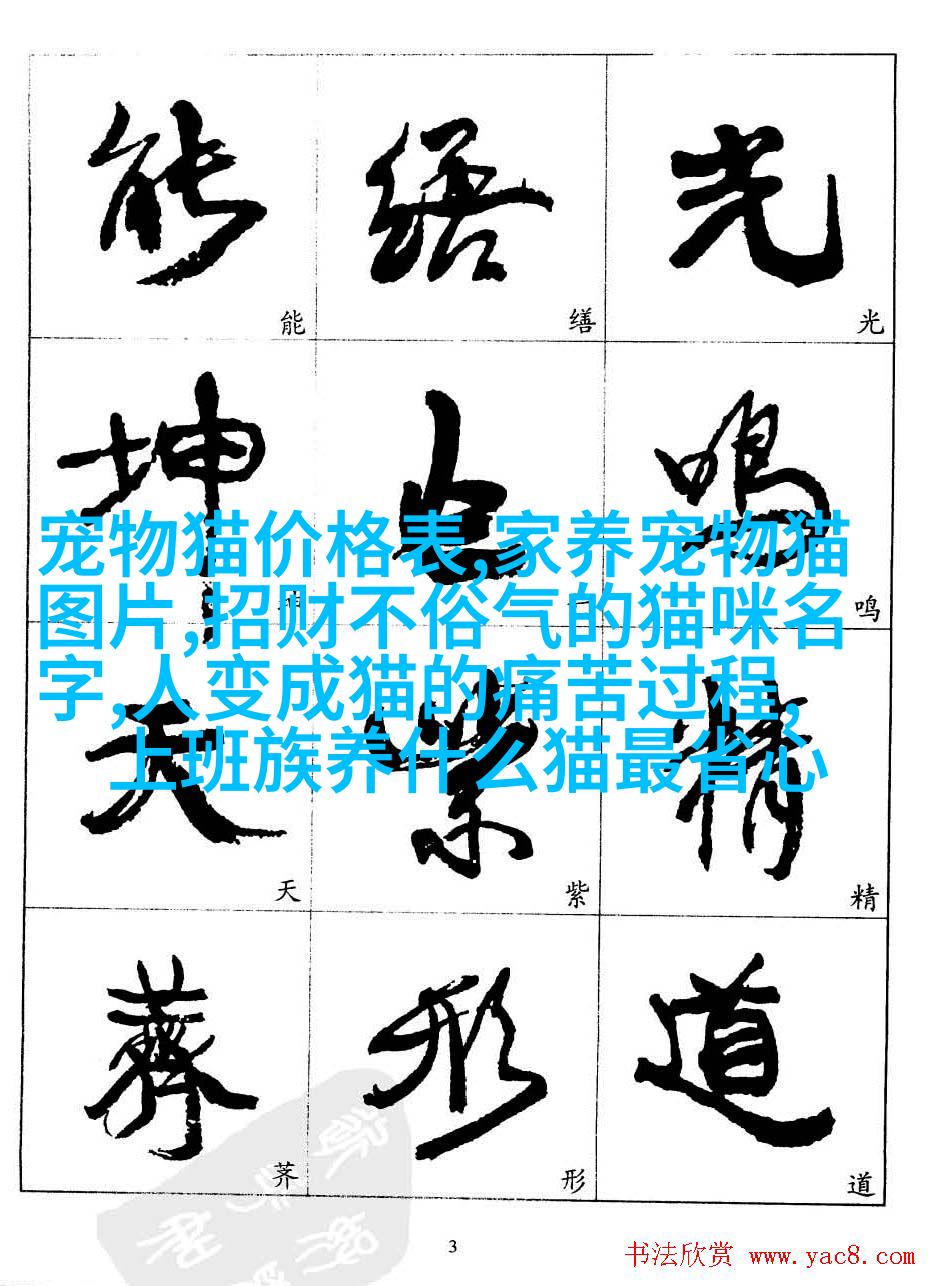 能 繕 光
能 缮 光
坤 鳴
宠物猫价格表,家养宠物猫
图片,招财不俗气的猫咪名
字,人变成猫的痛苦过程,
上班族养什么猫最省心
鸣
天 紫 精
天 紫 精
薺 形 道
荠 形 道
3
书法欣赏 www.yac8.com